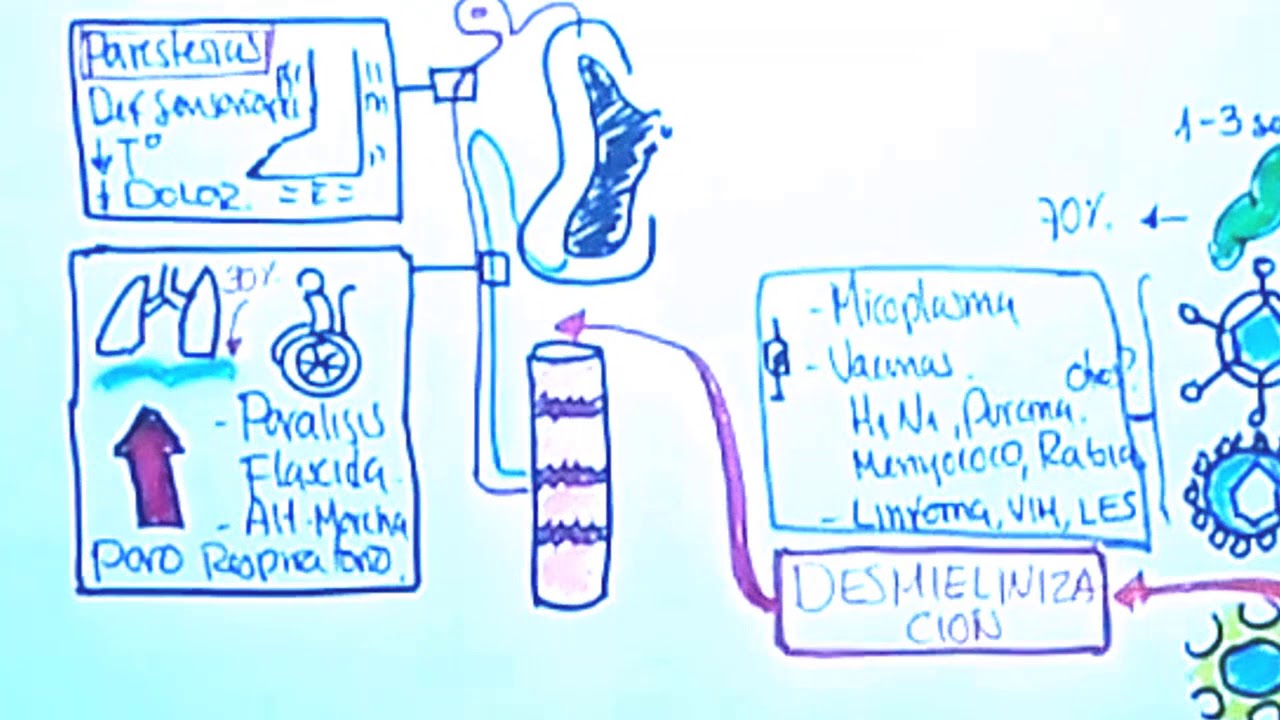 Parestesias
Def Sensoriales
↓ T°
↓ DOLOR.
30%
- Paralisis
Flascida.
- Alt. Marcha
paro Respiratorio.
1-3 se
70%. ←
- Micoplasma
- Vacunas.
H1N1,
Rabia
- Linfoma, VIH, LES
DESMIELINIZA
CION